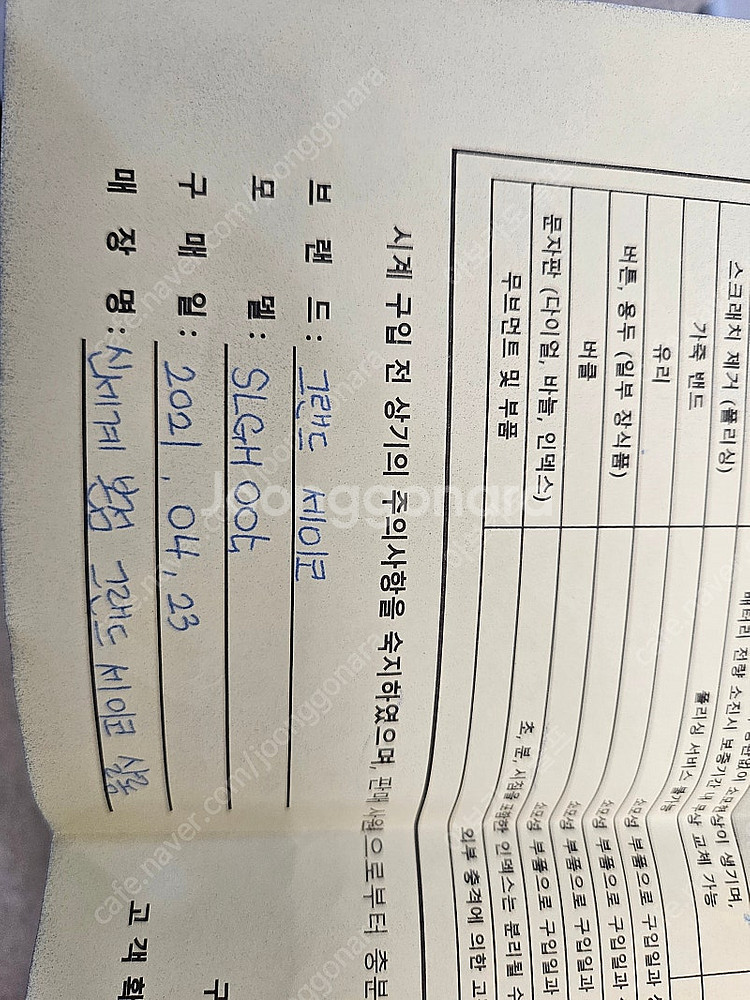 스크래치 제거 (폴리싱)
배터리 전량 소진시 보증기간 내 무상 교체 가능
가죽 밴드
소모현상이 생기며,
폴리싱 서비스 불가능
유리
소모성 부품으로 구입일과
버튼, 용두 (일부 장식품)
소모성 부품으로 구입일과
버클
소모성 부품으로 구입일과
문자판 (다이얼, 바늘, 인덱스)
초, 분, 시침을 포함한 인덱스는 분리될 수
무브먼트 및 부품
외부 충격에 의한 고
시계 구입 전 상기의 주의사항을 숙지하였으며, 판매사원으로부터 충분
브 랜 드 : 그랜드 세이코
모 델 : SLGH005
구 매 일 : 2021. 04. 23
매 장 명 : 신세계 본점 그랜드 세이코 살롱
구
고 객 확
Joonggonara
cafe.naver.com/joonggonara